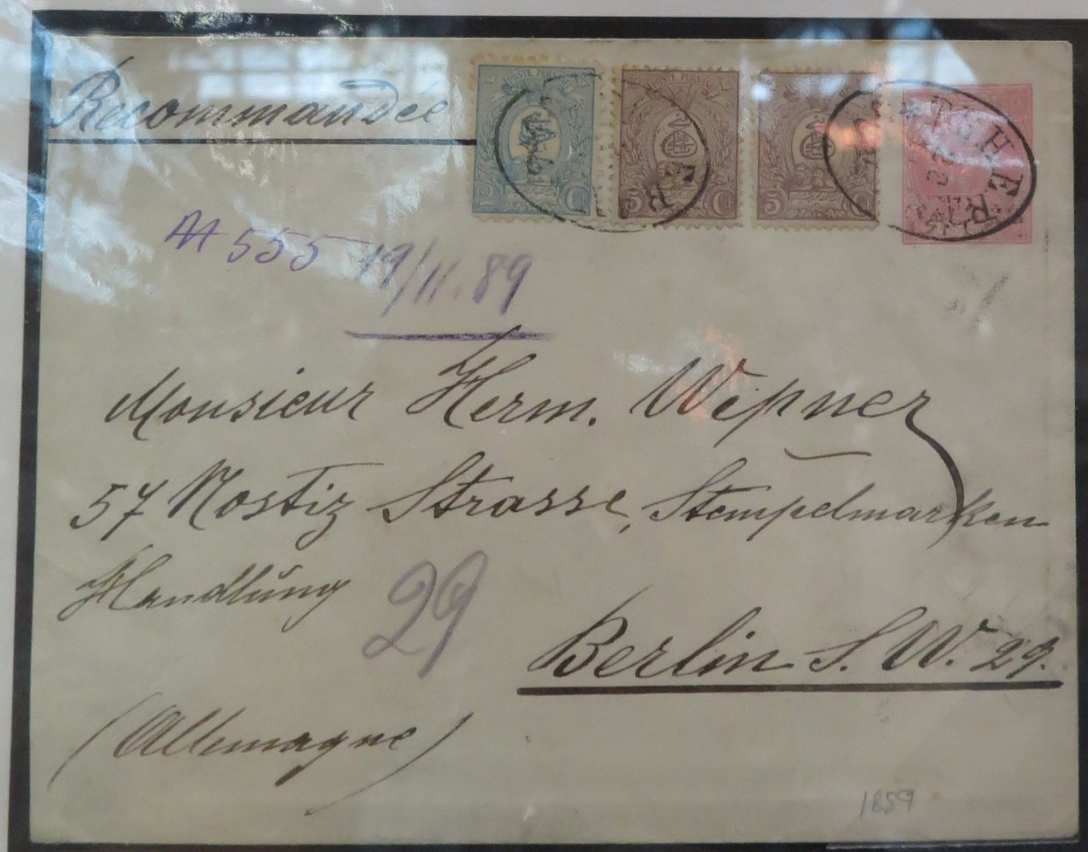 Recommandée
POSTE PERSANE
2 C
5 C
5 C
TEHERAN
№ 555 19/11.89
Monsieur Herm. Wepner
57 Nostiz Strasse, Stempelmarken
Handlung
29
Berlin S. W. 29.
(Allemagne)
1889